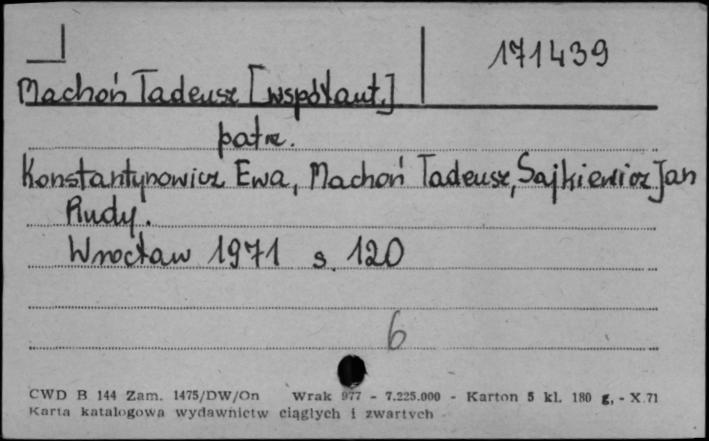 171439
Machoń Tadeusz [współaut.]
patrz.
Konstantynowicz Ewa, Machoń Tadeusz, Sajkiewicz Jan
Rudy.
Wrocław 1971 s. 120
6
CWD B 144 Zam. 1475/DW/On Wrak 977 - 7.225.000 - Karton 5 kl. 180 g, - X.71
Karta katalogowa wydawnictw ciągłych i zwartych